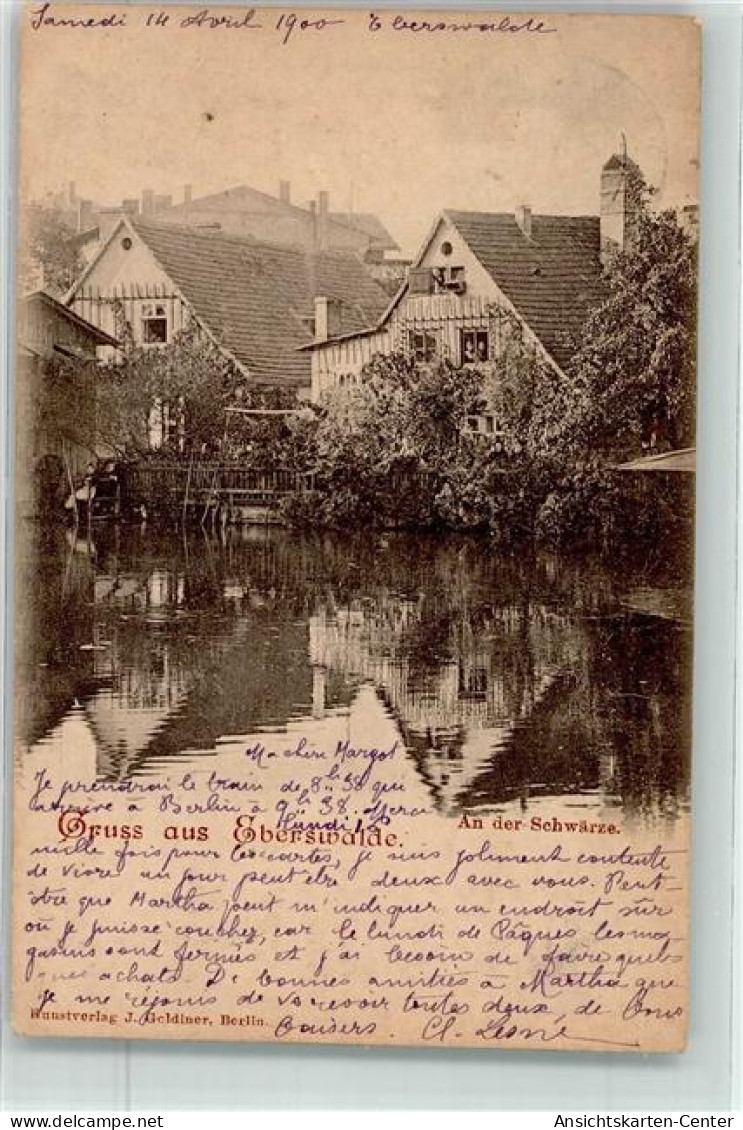 Samedi 14 Avril 1900 Eberswalde
Ma chère Margot
Je prendrai le train de 8h 38 qui
arrive à Berlin à 9h 38. Merci
lundi
Gruss aus Eberswalde.
An der Schwärze.
mille fois pour les cartes, je suis joliment contente
de vivre un jour peut être deux avec vous. Peut-
être que Martha peut m'indiquer un endroit sûr
où je puisse coucher, car le lundi de Pâques les ma-
gasins sont fermés et j'ai besoin de faire quel-
ques achats. De bonnes amitiés à Martha que
je me réjouis de revoir toutes deux, de bons
Kunstverlag J. Goldiner, Berlin
baisers. Cl. Lesné
oldthing.de
Ansichtskarten-Center